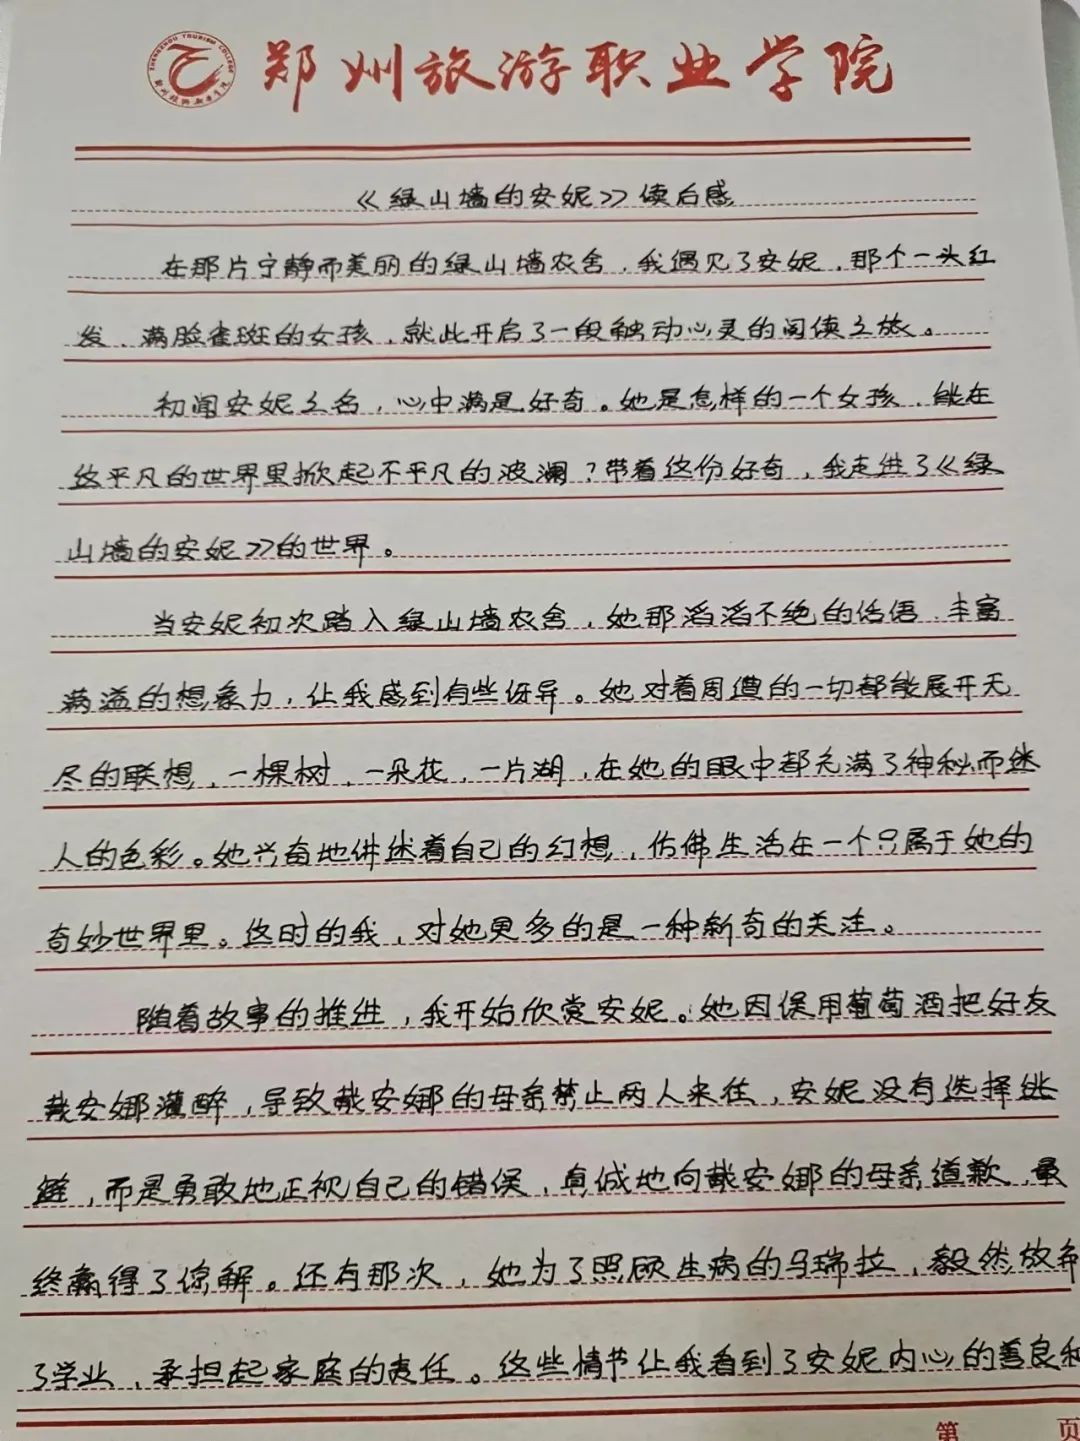 ZHENGZHOU TOURISM COLLEGE
郑州旅游职业学院
《绿山墙的安妮》读后感
在那片宁静而美丽的绿山墙农舍，我遇见了安妮，那个一头红
发、满脸雀斑的女孩，就此开启了一段触动心灵的阅读之旅。
初闻安妮之名，心中满是好奇。她是怎样的一个女孩，能在
这平凡的世界里掀起不平凡的波澜？带着这份好奇，我走进了《绿
山墙的安妮》的世界。
当安妮初次踏入绿山墙农舍，她那滔滔不绝的话语、丰富
满溢的想象力，让我感到有些讶异。她对着周遭的一切都能展开无
尽的联想，一棵树，一朵花，一片湖，在她的眼中都充满了神秘而迷
人的色彩。她兴奋地讲述着自己的幻想，仿佛生活在一个只属于她的
奇妙世界里。这时的我，对她更多的是一种新奇的关注。
随着故事的推进，我开始欣赏安妮。她因误用葡萄酒把好友
戴安娜灌醉，导致戴安娜的母亲禁止两人来往，安妮没有选择逃
避，而是勇敢地正视自己的错误，真诚地向戴安娜的母亲道歉，最
终赢得了谅解。还有那次，她为了照顾生病的马瑞拉，毅然放弃
了学业，承担起家庭的责任。这些情节让我看到了安妮内心的善良和
第 页